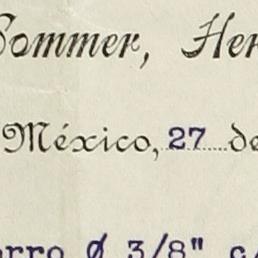 Sommer, Her
México, 27 de
orro Ø 3/8" c/